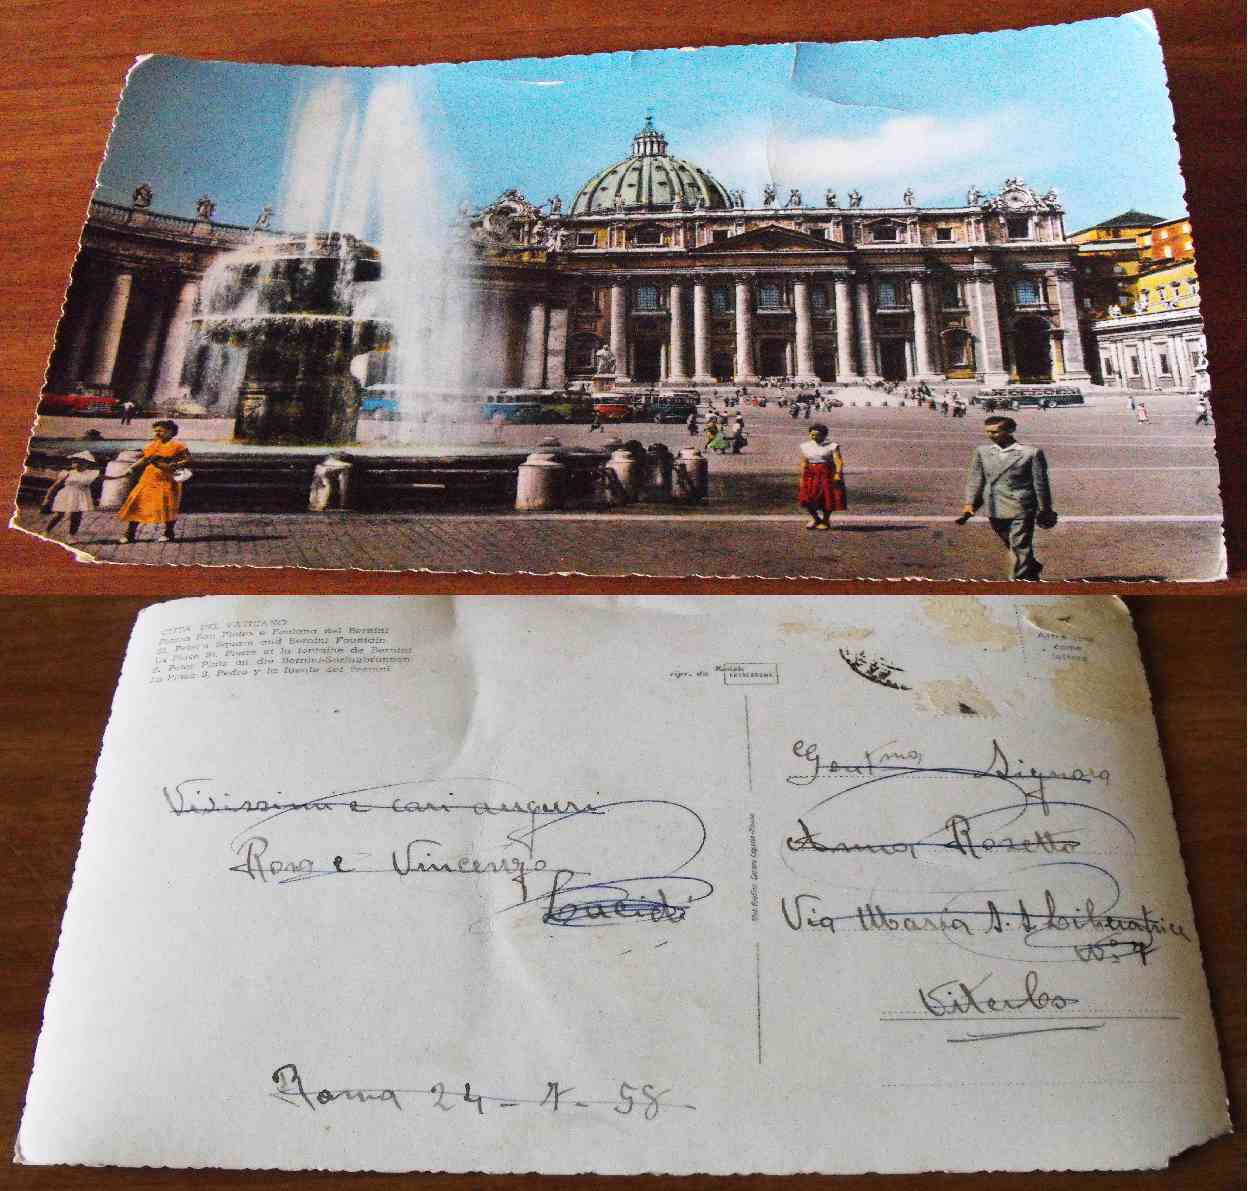 CITTÀ DEL VATICANO
Piazza San Pietro e Fontana del Bernini
St. Peter's Square and Bernini Fountain
La Place St. Pierre et la fontaine de Bernini
S. Peter Platz an die Bernini-
La Plaza S. Pedro y la fuente del Bernini
ripr. da Kodak EKTACHROME
come
lettera
Vivissimi e cari auguri
Rosa e Vincenzo
Lucidi
Roma 24-7-58
Gent.ma Signora
Anna Rosetto
Via Maria S.S. Liberatrice
N° 7
Viterbo